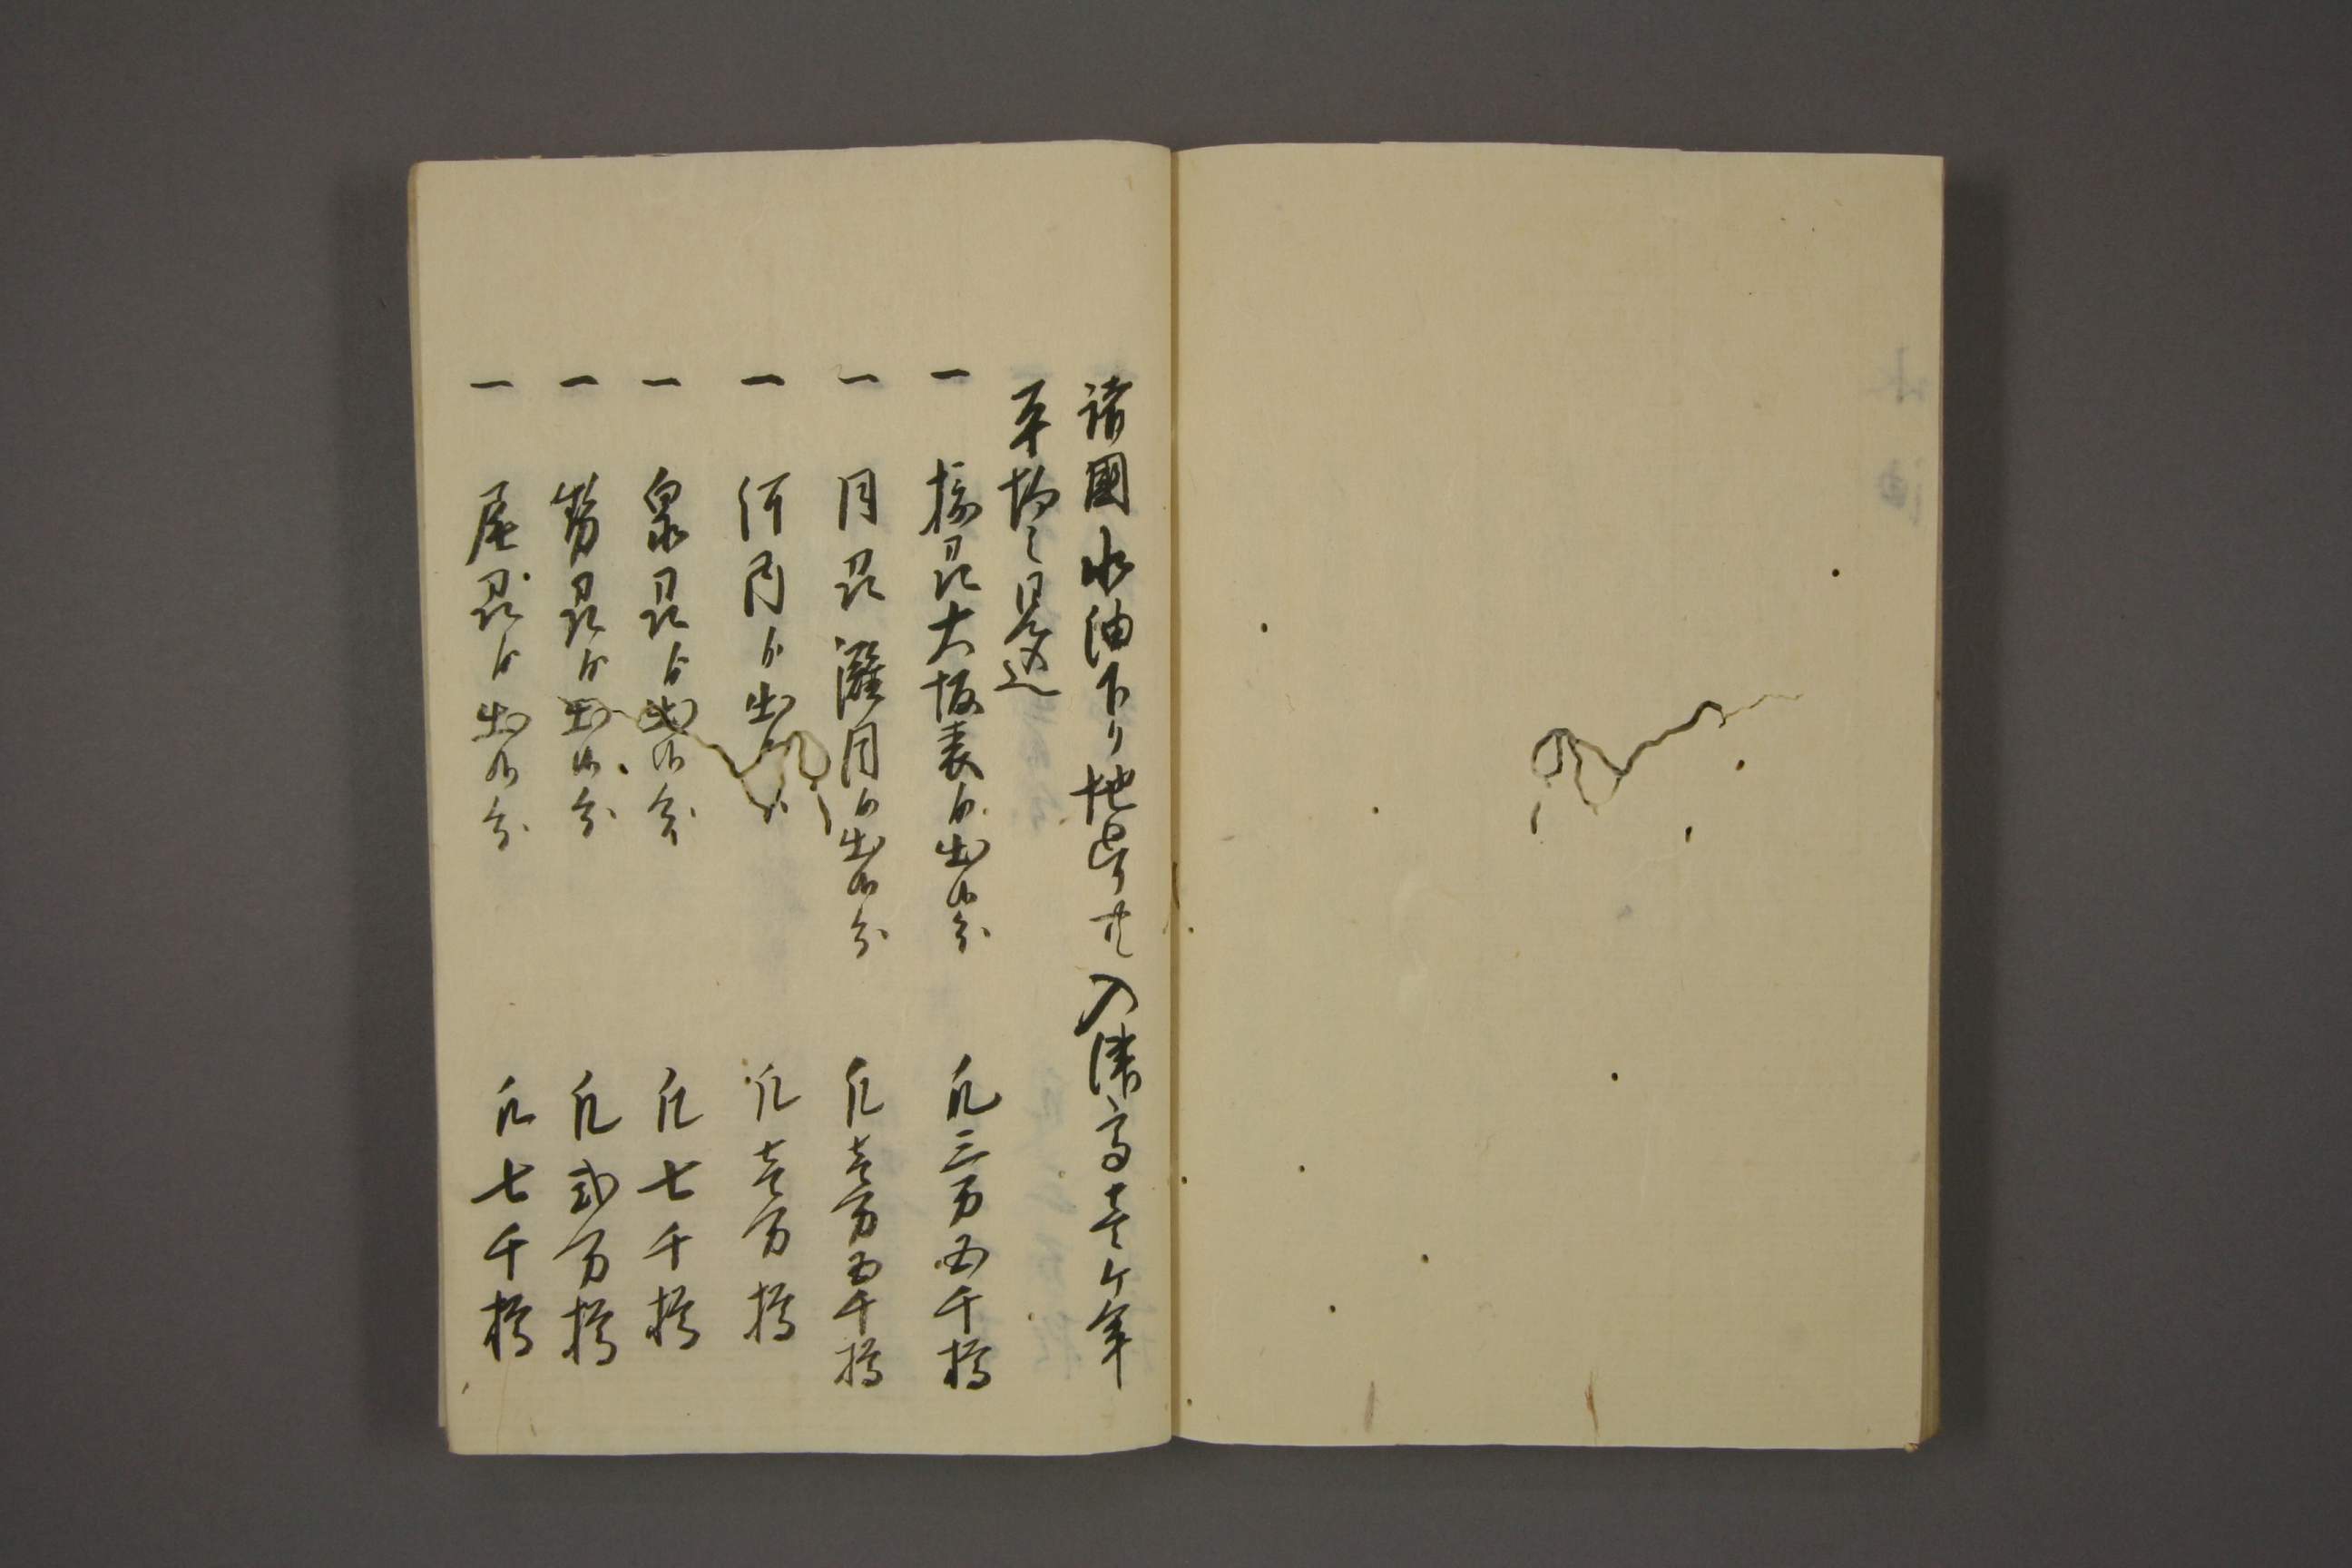 諸國水油下リ地廻リ共入津高壱ケ年
平均之見込
一 摂州大坂表ゟ出候分 凡三万五千樽
一 同州灘目ゟ出候分 凡壱万五千樽
一 河内ゟ出候分 凡壱万樽
一 泉州ゟ出候分 凡七千樽
一 勢州ゟ出候分 凡弐万樽
一 尾州ゟ出候分 凡七千樽